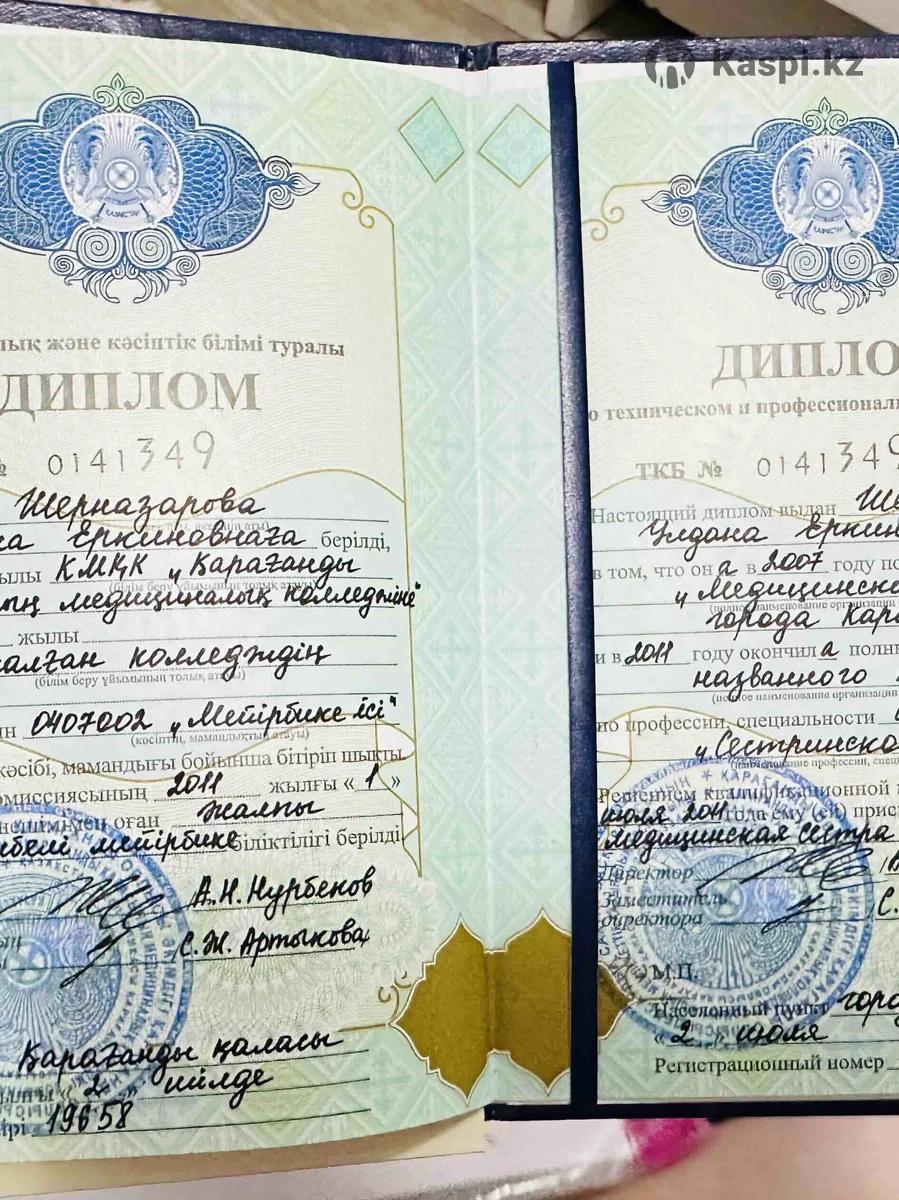 Kaspi.kz
ҚАЗАҚСТАН
лық және кәсіптік білімі туралы
ДИПЛОМ
№ 0141349
Шерназарова
Еркиновнаға берілді,
ылы КМҚК „Қарағанды
ың медициналық колледжіне"
жылы
алған колледждің
(білім беру ұйымының толық атауы)
0407002 „Мейірбике ісі"
(кәсіптің, мамандықтың атауы)
кәсібі, мамандығы бойынша бітіріп шықты.
омиссиясының 2011 жылғы « 1 »
нешімімен оған жалпы
мейірбике біліктілігі берілді
А.Н.Нурбеков
С.Ж.Артыкова
Қарағанды қаласы
« 2 » шілде
19658
ҚАЗАҚСТАН
ДИПЛО
о техническом и профессионалы
ТКБ № 0141349
Настоящий диплом выдан Ше
Улдана Еркин
в том, что он а в 2007 году по
„Медицинско
(полное наименование организации
города Кара
и в 2011 году окончил а полн
названного
(полное наименование организации
по профессии, специальности
„Сестринско
(наименование профессии, спец
Решением квалификационной
июля 2011 года ему (ей) прис
медицинская сестра
Директор
Заместитель С.
директора
М.П.
Населенный пункт горо
« 2 » июля
Регистрационный номер